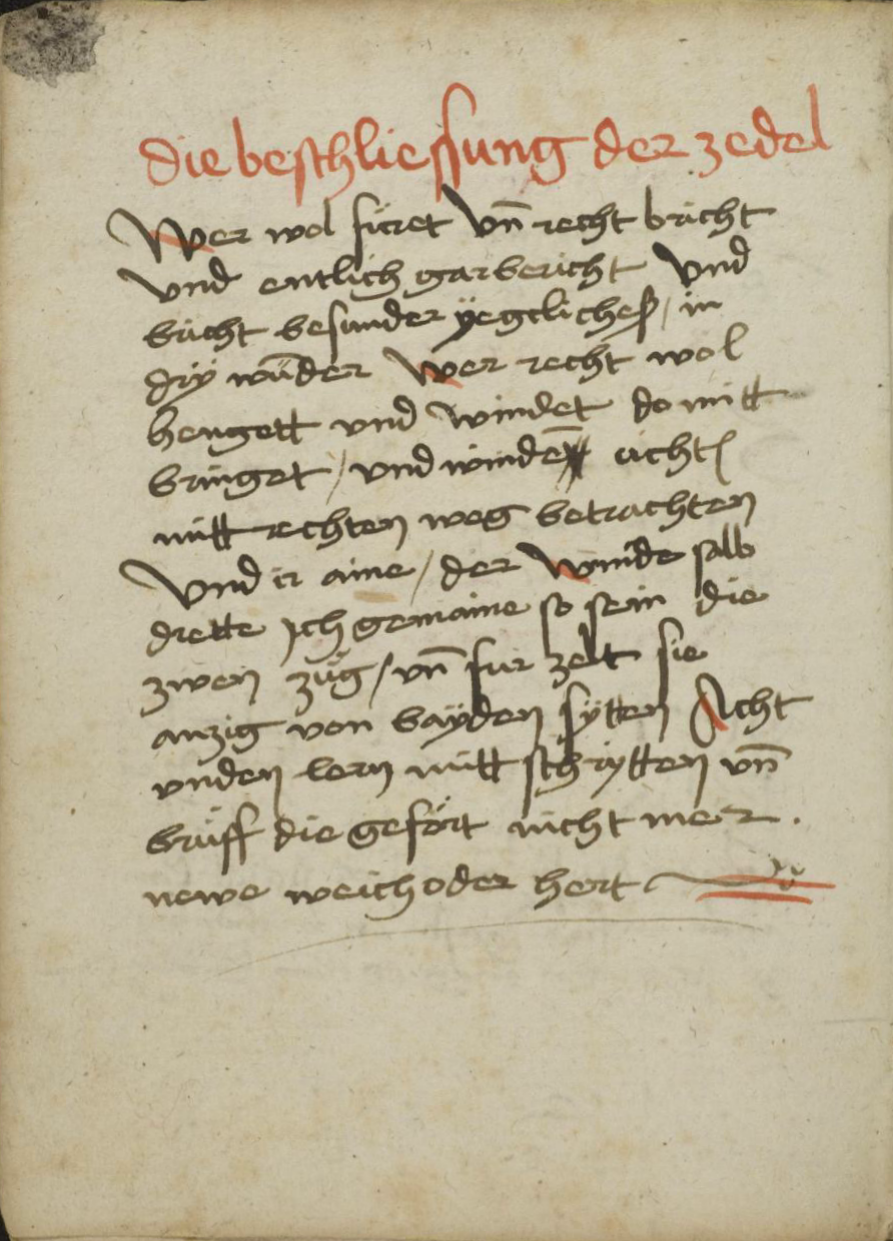 die beschliessung der zedel
Wer wol füret vn̄ recht bricht
vnd entlich gar bericht Vnd
bricht besunder ÿegcliches / in
drÿ wūder Wer recht wol
hengett vnd windet do mitt
bringet / vnd winden̄ acht
mitt rechten weg betrachten
Vnd ir aine / der winde selb
drette Jch gemaine so sein die
zwen züg / vn̄ fur zelt sie
anzig von baÿden sÿtten Acht
vnden lern mitt schrÿtten vn̄
brüff die gefört nicht mer .
newe weich oder hert